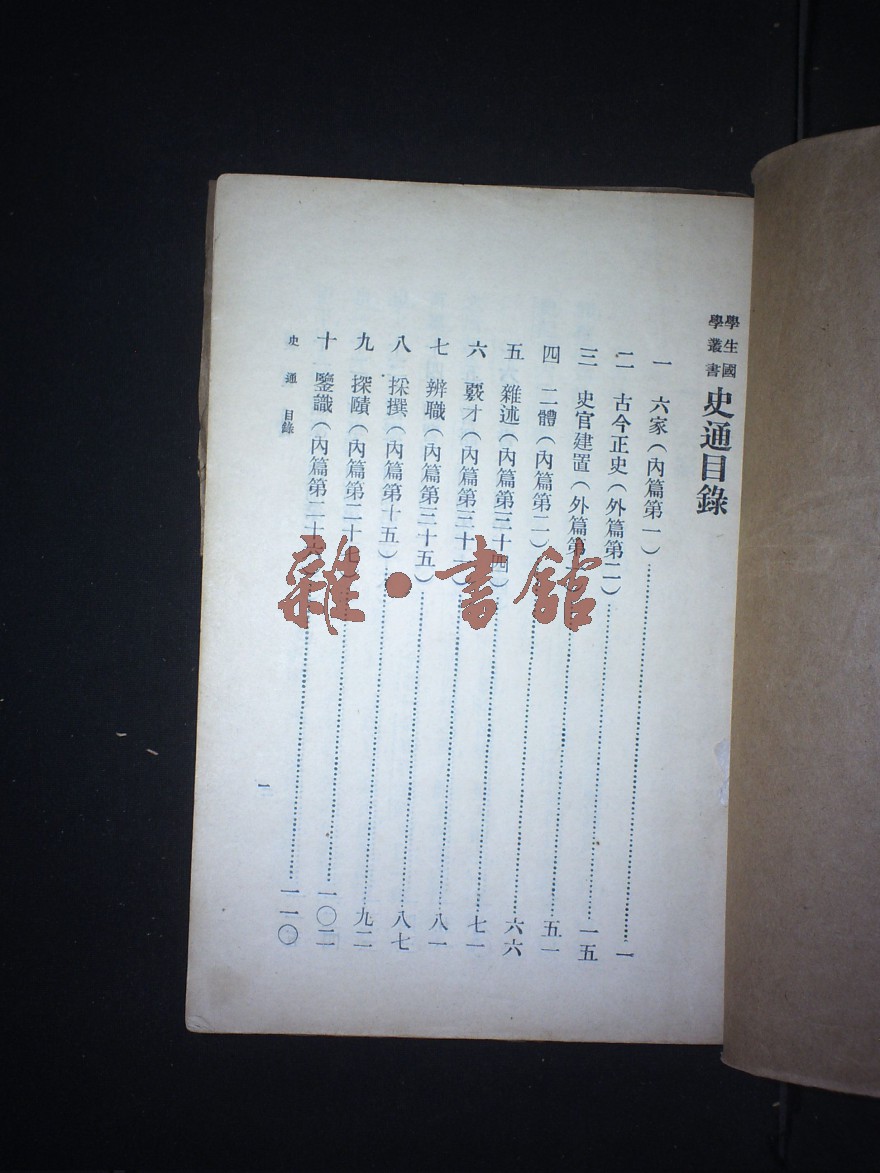 學生國學叢書 史通目錄
一 六家(內篇第一)……一
二 古今正史(外篇第二)……一五
三 史官建置(外篇第……五一
四 二體(內篇第二)……六六
五 雜述(內篇第三十四)……七一
六 覈才(內篇第三十一)……八一
七 辨職(內篇第三十五)……八七
八 採撰(內篇第十五)……九二
九 探賾(內篇第二十七)……一〇二
十 鑒識(內篇第二十六)……一一〇
史通 目錄
一
雜·書館